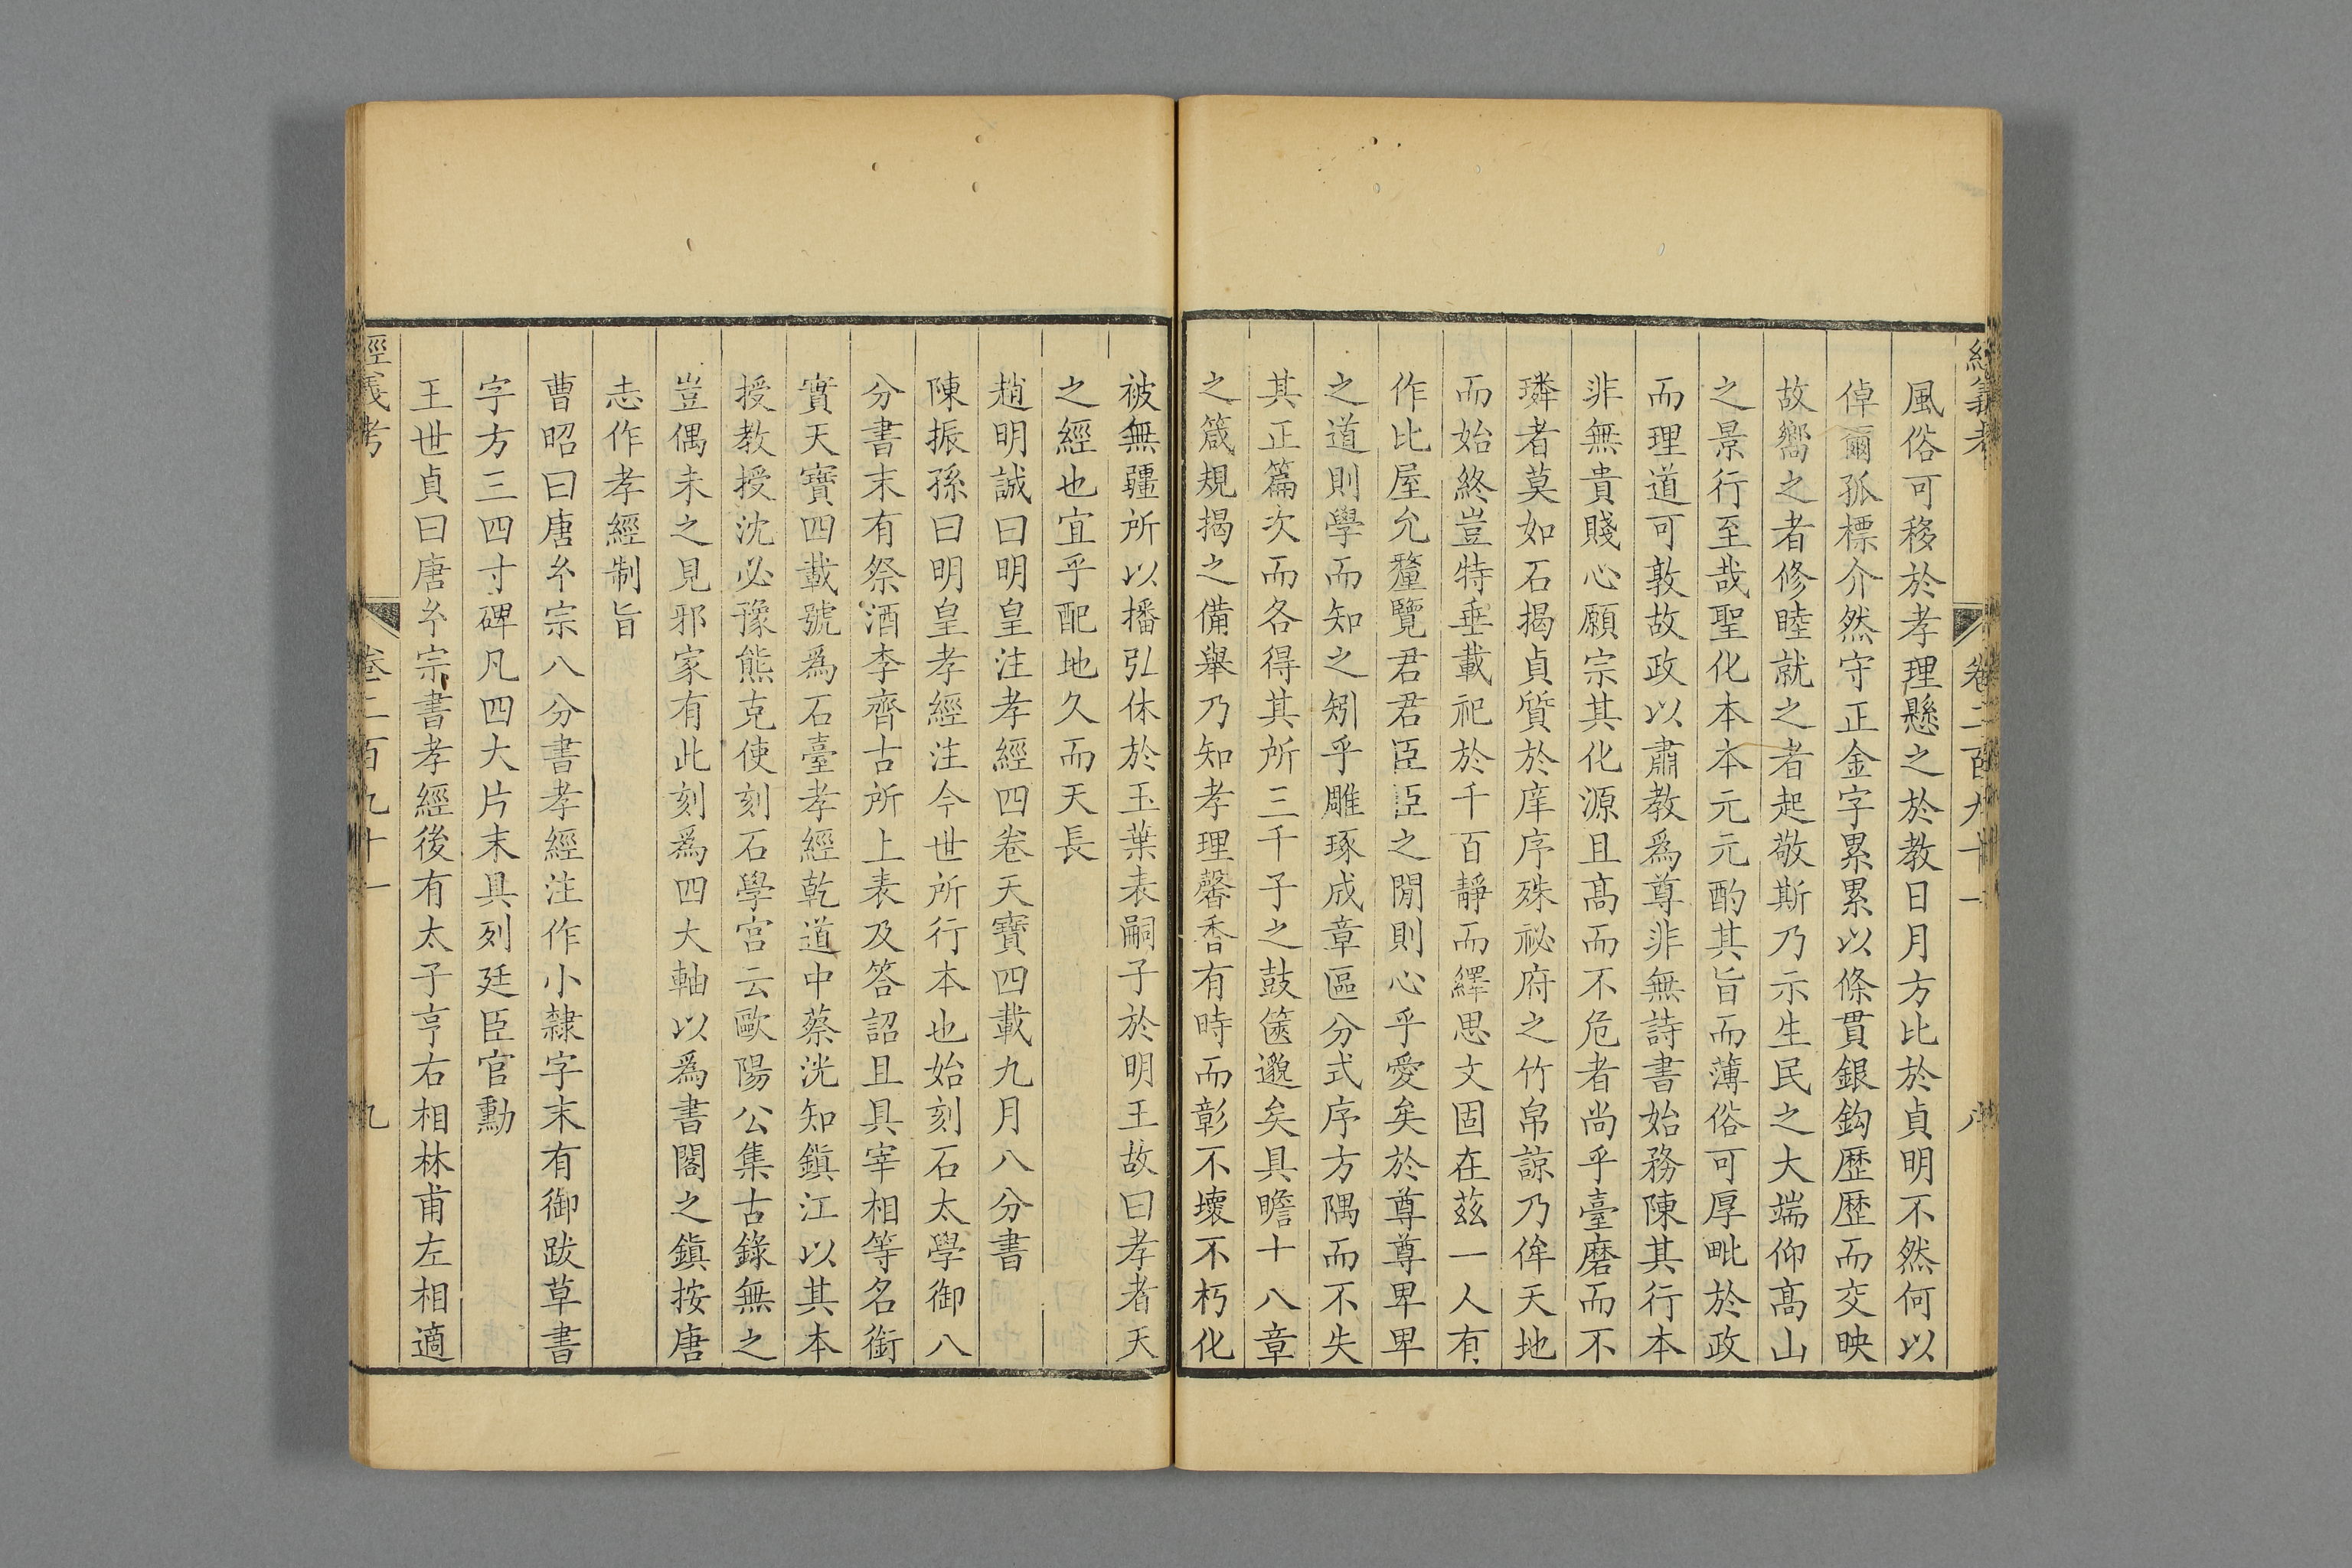 經義考
卷二百九十一
八
風俗可移於孝理懸之於教日月方比於貞明不然何以
倬爾孤標介然守正金字累累以條貫銀鈎歴歴而交映
故嚮之者修睦就之者起敬斯乃示生民之大端仰髙山
之景行至哉聖化本本元元酌其旨而薄俗可厚毗於政
而理道可敦故政以肅教爲尊非無詩書始務陳其行本
非無貴賤心願宗其化源且髙而不危者尚乎臺磨而不
璘者莫如石揭貞質於庠序殊祕府之竹帛諒乃侔天地
而始終豈特垂載祀於千百靜而繹思文固在茲一人有
作比屋允釐覽君君臣臣之閒則心乎愛矣於尊尊卑卑
之道則學而知之矧乎雕琢成章區分式序方隅而不失
其正篇次而各得其所三千子之鼓篋邈矣具瞻十八章
之箴規揭之備舉乃知孝理馨香有時而彰不壞不朽化
被無疆所以播弘休於玉葉表嗣子於明王故曰孝者天
之經也宜乎配地久而天長
趙明誠曰明皇注孝經四卷天寶四載九月八分書
陳振孫曰明皇孝經注今世所行本也始刻石太學御八
分書末有祭酒李齊古所上表及答詔且具宰相等名銜
實天寶四載號爲石臺孝經乾道中蔡洸知鎭江以其本
授教授沈必豫熊克使刻石學宮云歐陽公集古錄無之
豈偶未之見邪家有此刻爲四大軸以爲書閣之鎭按唐
志作孝經制旨
曹昭曰唐𤣥宗八分書孝經注作小隸字末有御跋草書
字方三四寸碑凡四大片末具列廷臣官勳
王世貞曰唐𤣥宗書孝經後有太子亨右相林甫左相適
經義考
卷二百九十一
九